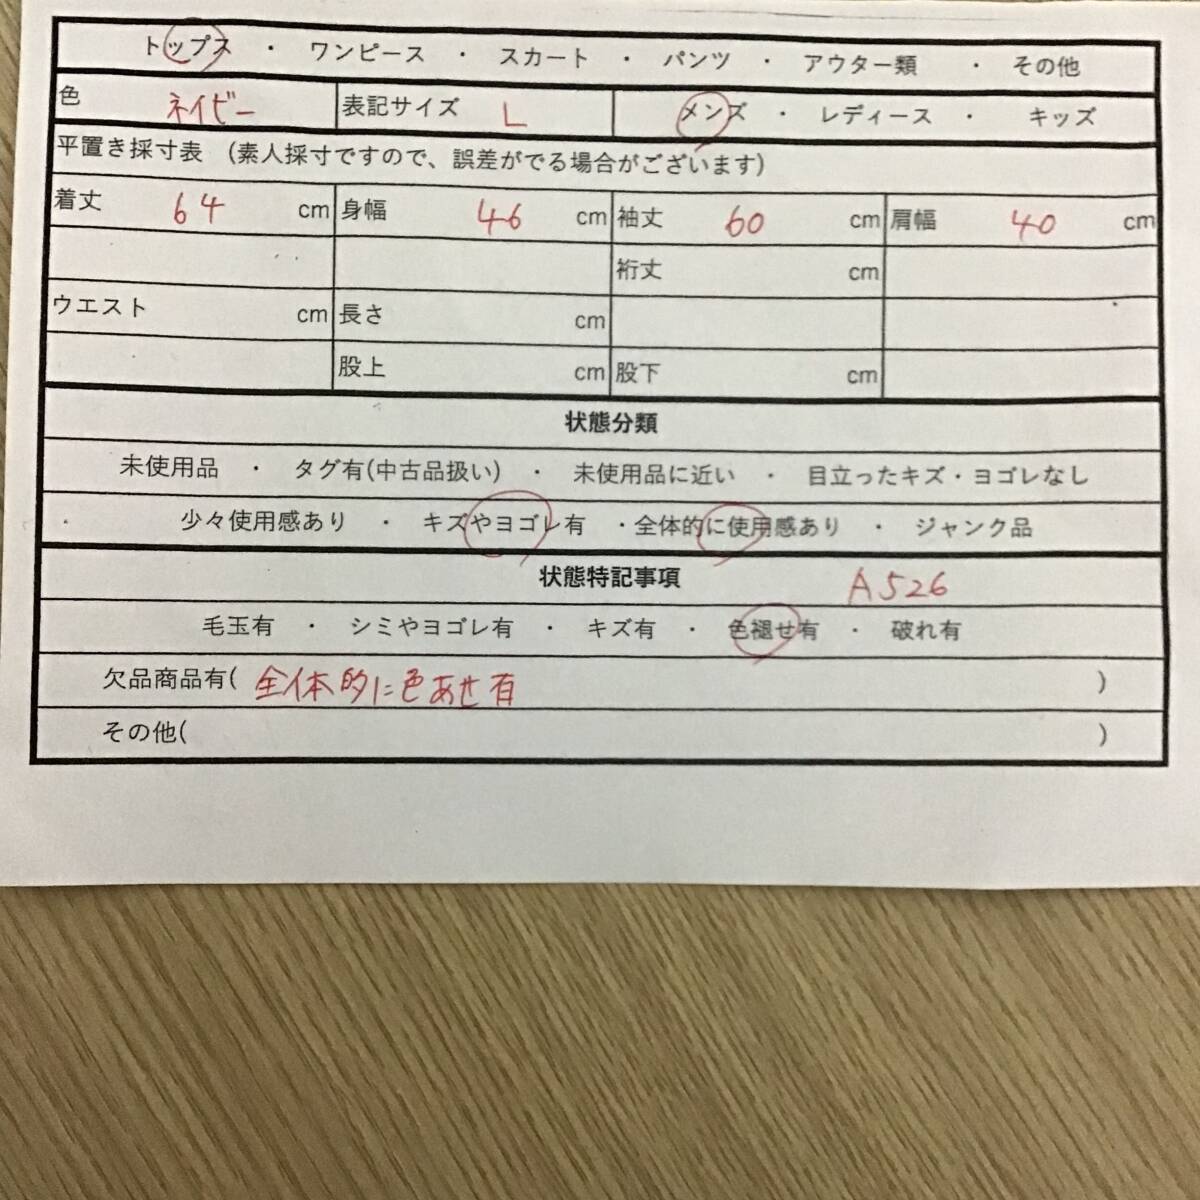 トップス ・ ワンピース ・ スカート ・ パンツ ・ アウター類 ・ その他
色 ネイビー 表記サイズ L メンズ ・ レディース ・ キッズ
平置き採寸表 (素人採寸ですので、誤差がでる場合がございます)
着丈 64 cm 身幅 46 cm 袖丈 60 cm 肩幅 40 cm
裄丈 cm
ウエスト cm 長さ cm
股上 cm 股下 cm
状態分類
未使用品 ・ タグ有(中古品扱い) ・ 未使用品に近い ・ 目立ったキズ・ヨゴレなし
少々使用感あり ・ キズやヨゴレ有 ・全体的に使用感あり ・ ジャンク品
状態特記事項 A526
毛玉有 ・ シミやヨゴレ有 ・ キズ有 ・ 色褪せ有 ・ 破れ有
欠品商品有( 全体的に色あせ有 )
その他( )